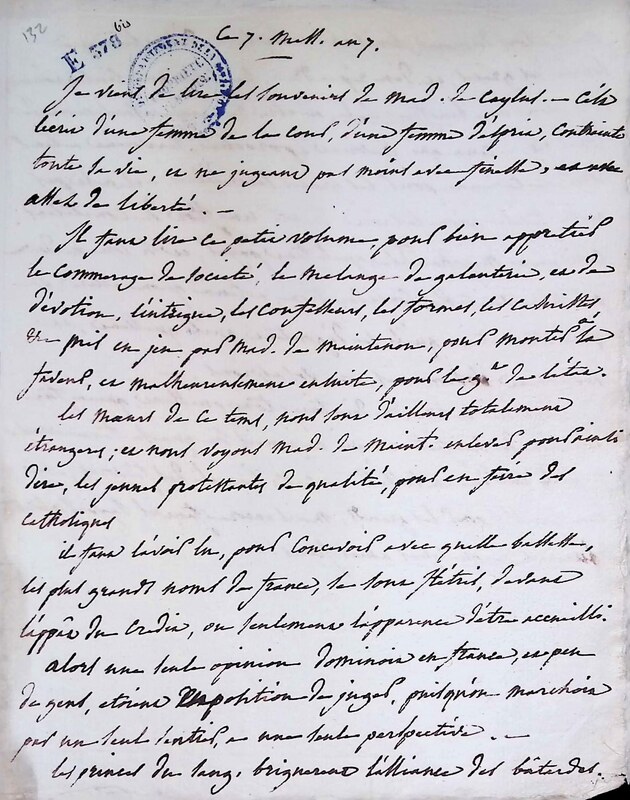 132
E 378 bis
Ce 7. Mess. an 7.
Je viens de lire les souvenirs de mad. de Caylus. – C'est
l'écrit d'une femme de la cour, d'une femme d'esprit, contrainte
toute sa vie, et ne jugeant pas moins avec finesse, et avec
assez de liberté. –
Il faut lire ce petit volume, pour bien apprétier
le commerage de société, le mélange de galanterie, et de
dévotion, l'intrigue, les confesseurs, les formes, les
&c mis en jeu par Mad. de Maintenon, pour monter à la
faveur, et malheureusement ensuite, pour le g.t de l'état.
les mœurs de ce tems, nous sont d'ailleurs totalement
étrangeres; et nous voyons Mad. de Maint. enlever pour ainsi
dire, les jeunes protestantes de qualité, pour en faire des
catholiques
il faut l'avoir lu, pour concevoir avec quelle bassesse,
les plus grands noms de france, se sont flétris, devant
l'appât du crédit, ou seulement l'apparence d'être accueilli.
alors une seule opinion dominoit en france, et peu
de gens, etoient en position de juger, puisqu'on marchoit
par un seul sentier, à une seule perspective. –
les princes du sang, briguerent l'alliance des bâtardes.